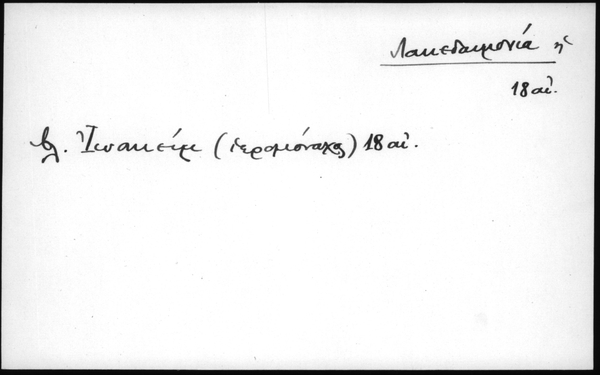 Λακεδαιμονία ἡ
18 αἰ.
βλ. Ἰωακείμ (ἱερομόναχος) 18 αἰ.